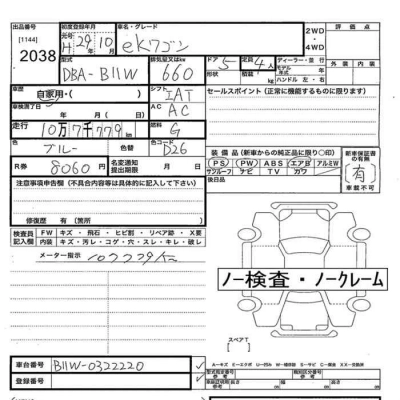 出品番号
[1144]
2038
初度登録年月
元号 年 月
H 29 10
車名・グレード
ekワゴン
2WD
・
4WD
評価点
外装
内装
型式
DBA-B11W
排気量又はkw
660
ドア 形状
5
定員
4人
積載量 kg
ディーラー・並行
モデル年式
ハンドル 左・右
車歴
自家用・( )
シフト
IAT
セールスポイント (正常に機能するものに限ります)
車検満了日
年 月 日
AC
AC
走行
10万7千779km
燃料
G
色
ブルー
色替
色コード
D26
装備品(新車からの純正品に限り○印)
PS PW ABS エアB アルミW
サンルーフ ナビ TV カワ
新車保証書の有無
有
車載不可
R券
8060円
名変通知提出期限
月 日
後日品
注意事項申告欄(不具合内容等は具体的に記入して下さい)
修復歴 有 (箇所 )
検査員記入欄
FW キズ・飛石・ヒビ割・リペア跡・X要
内装 キズ・汚レ・コゲ・穴・スレ・キレ・破レ
メーター指示
107779km
ノー検査・ノークレーム
スペアT
[ ]
車台番号
B11W-0322220
登録番号